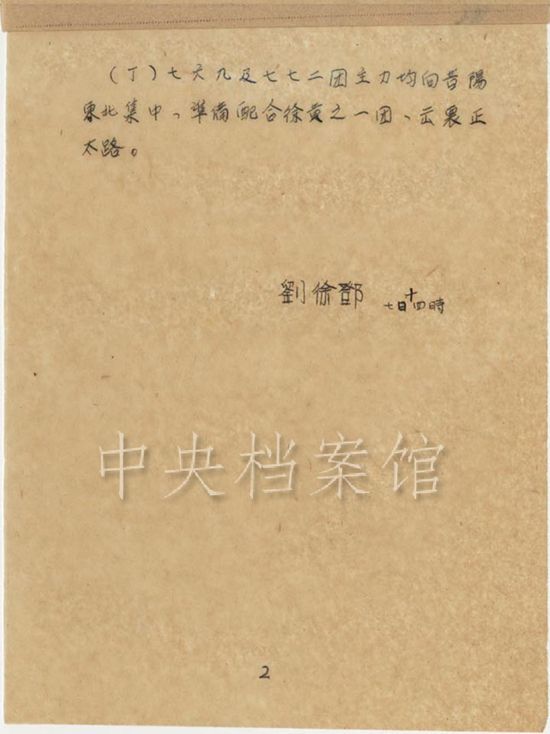 (丁)七六九及七七二团主力均向昔陽
東北集中、準備配合徐黄之一团、去袭正
太路。
劉徐鄧 七日十四時
中央档案馆
2